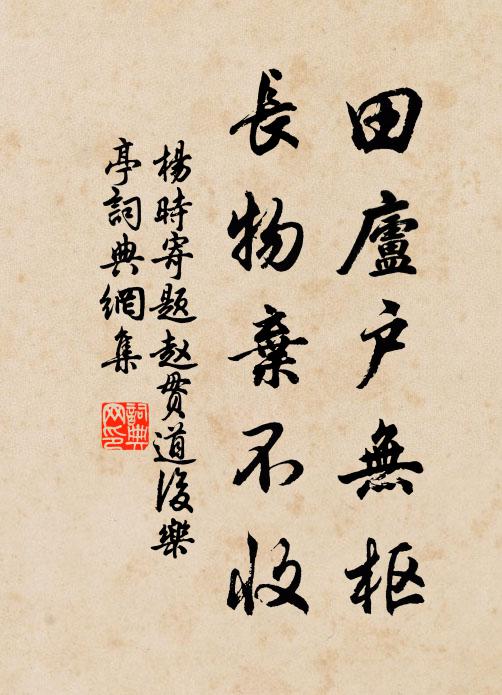 田廬戶無枢
長物棄不收
楊時寄題赵貫道後樂
亭詞典網集
詞典网印